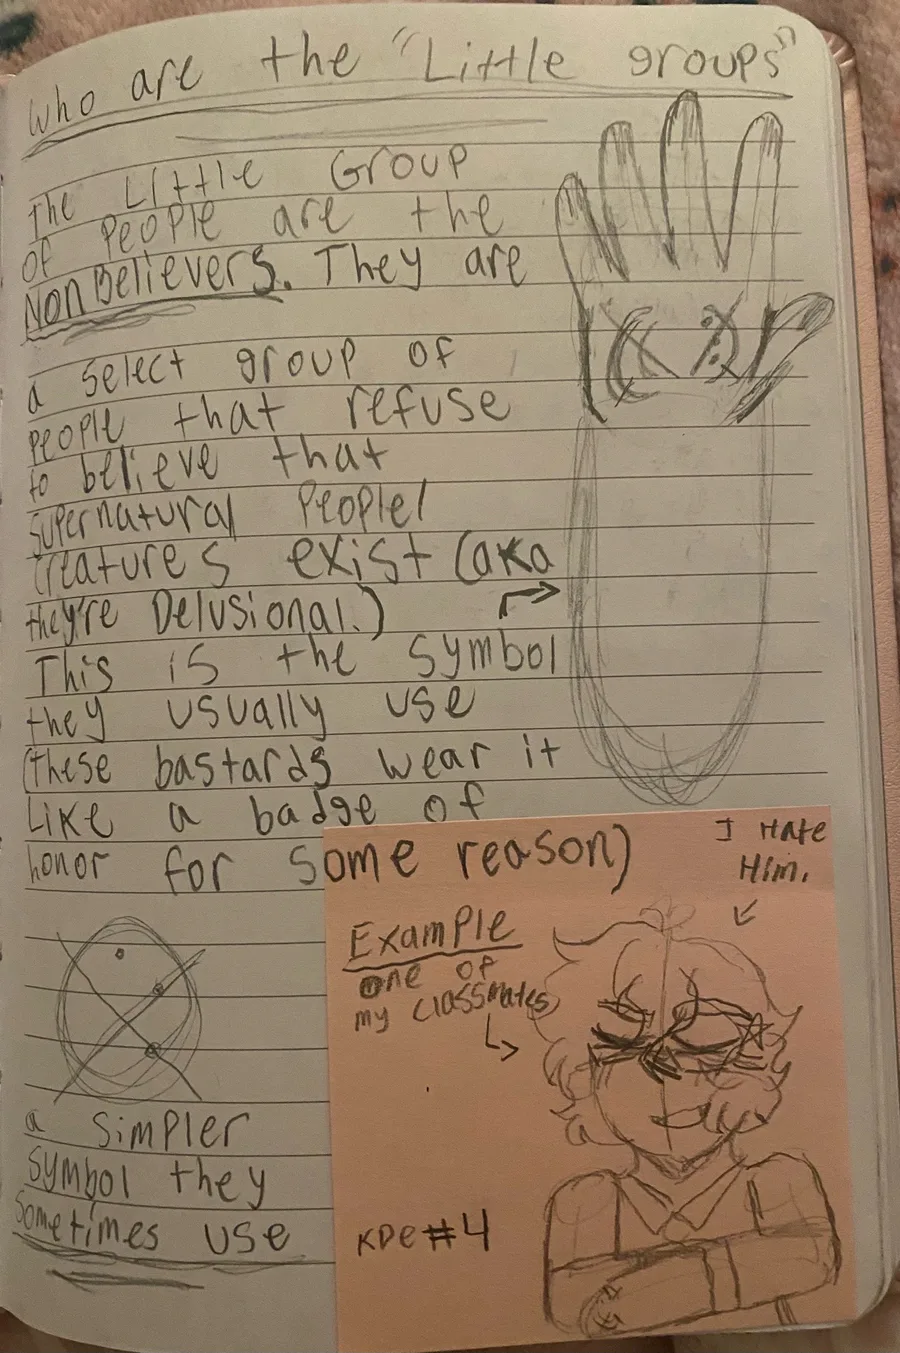 Who are the "Little groups"
The Little Group
of People are the
NonBelievers. They are
a select group of
people that refuse
to believe that
supernatural People/
creatures exist (aka
they're Delusional.)
This is the symbol
they usually use
(these bastards wear it
Like a badge of
honor for some reason)
I Hate
Him.
Example
one of
my classmates
a simpler
symbol they
sometimes use
KDE #4